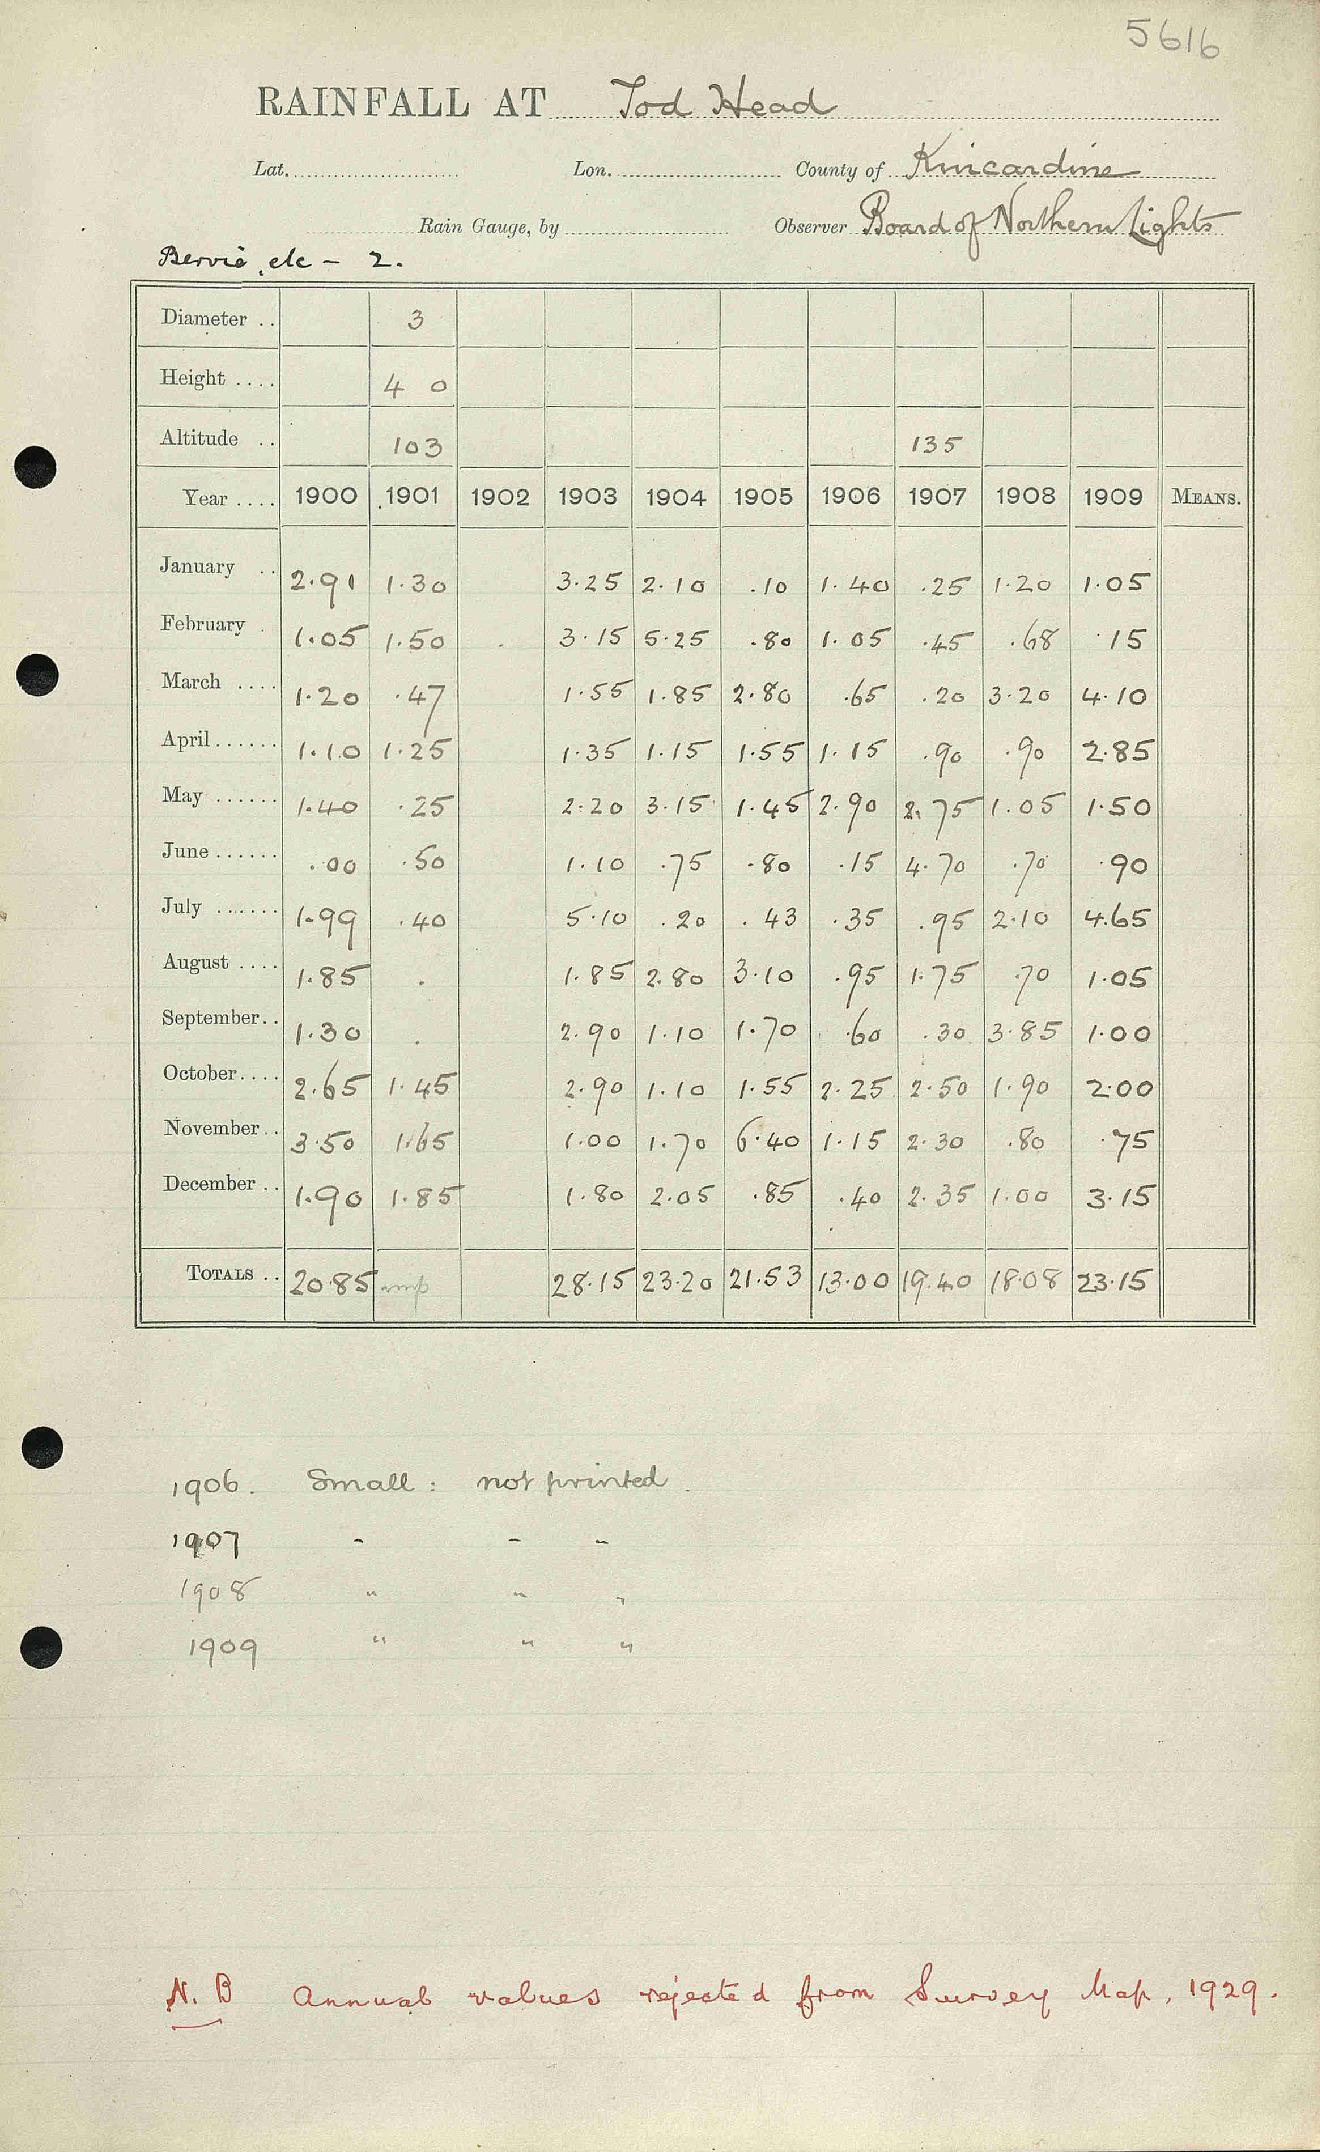 5616
RAINFALL AT Tod Head
Lat. Lon. County of Kincardine
Rain Gauge, by Observer Board of Northern Lights
Bervie etc - 2.
Diameter .. 3
Height .... 4 0
Altitude .. 103 135
Year .... 1900 1901 1902 1903 1904 1905 1906 1907 1908 1909 MEANS.
January .. 2.91 1.30 3.25 2.10 .10 1.40 .25 1.20 1.05
February . 1.05 1.50 . 3.15 5.25 .80 1.05 .45 .68 .15
March .... 1.20 .47 1.55 1.85 2.80 .65 .20 3.20 4.10
April...... 1.10 1.25 1.35 1.15 1.55 1.15 .90 .90 2.85
May ...... 1.40 .25 2.20 3.15 1.45 2.90 2.75 1.05 1.50
June ...... .00 .50 1.10 .75 .80 .15 4.70 .70 .90
July ...... 1.99 .40 5.10 .20 .43 .35 .95 2.10 4.65
August .... 1.85 . 1.85 2.80 3.10 .95 1.75 .70 1.05
September.. 1.30 . 2.90 1.10 1.70 .60 .30 3.85 1.00
October.... 2.65 1.45 2.90 1.10 1.55 2.25 2.50 1.90 2.00
November.. 3.50 1.65 1.00 1.70 6.40 1.15 2.30 .80 .75
December .. 1.90 1.85 1.80 2.05 .85 .40 2.35 1.00 3.15
TOTALS .. 20.85 imp 28.15 23.20 21.53 13.00 19.40 18.08 23.15
1906. Small : not printed.
1907 " " "
1908 " " "
1909 " " "
N.B Annual values rejected from Survey Map, 1929.